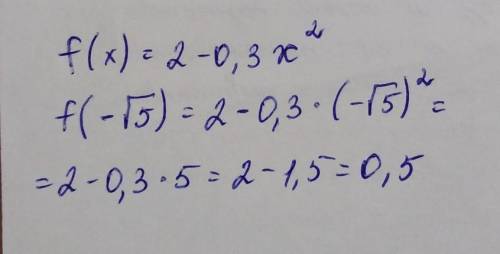 f(x) = 2 - 0,3 x²
f(-√5) = 2 - 0,3 · (-√5)² =
= 2 - 0,3 · 5 = 2 - 1,5 = 0,5